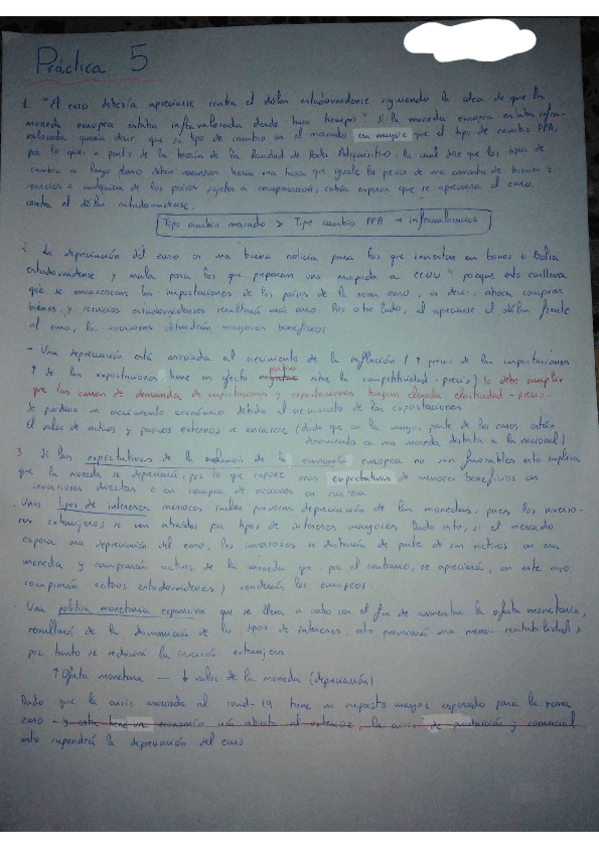 Práctica 5
1. "El euro debería apreciarse contra el dólar estadounidense siguiendo la idea de que la
moneda europea estaba infravalorada desde hace tiempo" Si la moneda europea estaba infra-
valorada quería decir que su tipo de cambio en el mercado era mayor que el tipo de cambio PPA,
por lo que, a partir de la teoría de la Paridad de Poder Adquisitivo, la cual dice que los tipos de
cambio a largo plazo deben moverse hacia una tasa que iguale los precios de una canasta de bienes y
servicios a cualquiera de los países sujetos a comparación, cabía esperar que se apreciara el euro
contra el dólar estadounidense.
Tipo cambio mercado > Tipo cambio PPA → infravaloración
2. La depreciación del euro es una "buena noticia para los que inviertan en bonos o Bolsa
estadounidense y mala para los que preparan una escapada a EEUU" porque esto conlleva
que se encarezcan las importaciones de los países de la zona euro, es decir, ahora comprar
bienes y servicios estadounidenses resultará más caro. Por otro lado, al apreciarse el dólar frente
al euro, los inversores obtendrán mayores beneficios
- Una depreciación está asociada al crecimiento de la inflación (↑ precio de las importaciones
↑ de las exportaciones, tiene un efecto positivo sobre la competitividad-precio) Se debe cumplir
que las curvas de demanda de importaciones y exportaciones tengan elevada elasticidad-precio
Se produce un crecimiento económico debido al crecimiento de las exportaciones
El valor de activos y pasivos externos se encarece (dado que en la mayor parte de los casos están
denominada en una moneda distinta a la nacional)
3. Si las expectativas de la evolución de la economía europea no son favorables esto implica
que la moneda se depreciará, por lo que supone unas expectativas de menores beneficios en
inversiones directas o en compra de acciones en cartera
. Unos tipos de intereses menores suelen provocar depreciación de las monedas, pues los inverso-
res extranjeros se ven atraídos por tipos de intereses mayores. Dado esto, si el mercado
espera una depreciación del euro, los inversores se desharán de parte de sus activos en esa
moneda y comprarán activos de la moneda que, por el contrario, se apreciará, en este caso
comprarán activos estadounidenses y venderán los europeos.
Una política monetaria expansiva que se lleva a cabo con el fin de aumentar la oferta monetaria,
resultará de la disminución de los tipos de intereses, esto provocará una menor rentabilidad y
por tanto se reducirá la inversión extranjera
↑ Oferta monetaria — ↓ valor de la moneda (depreciación)
Dado que la crisis asociada al covid-19 tiene un impacto mayor esperado para la zona
euro y esta tiene una economía más abierta al exterior, la crisis de producción y comercial
esto supondrá la depreciación del euro